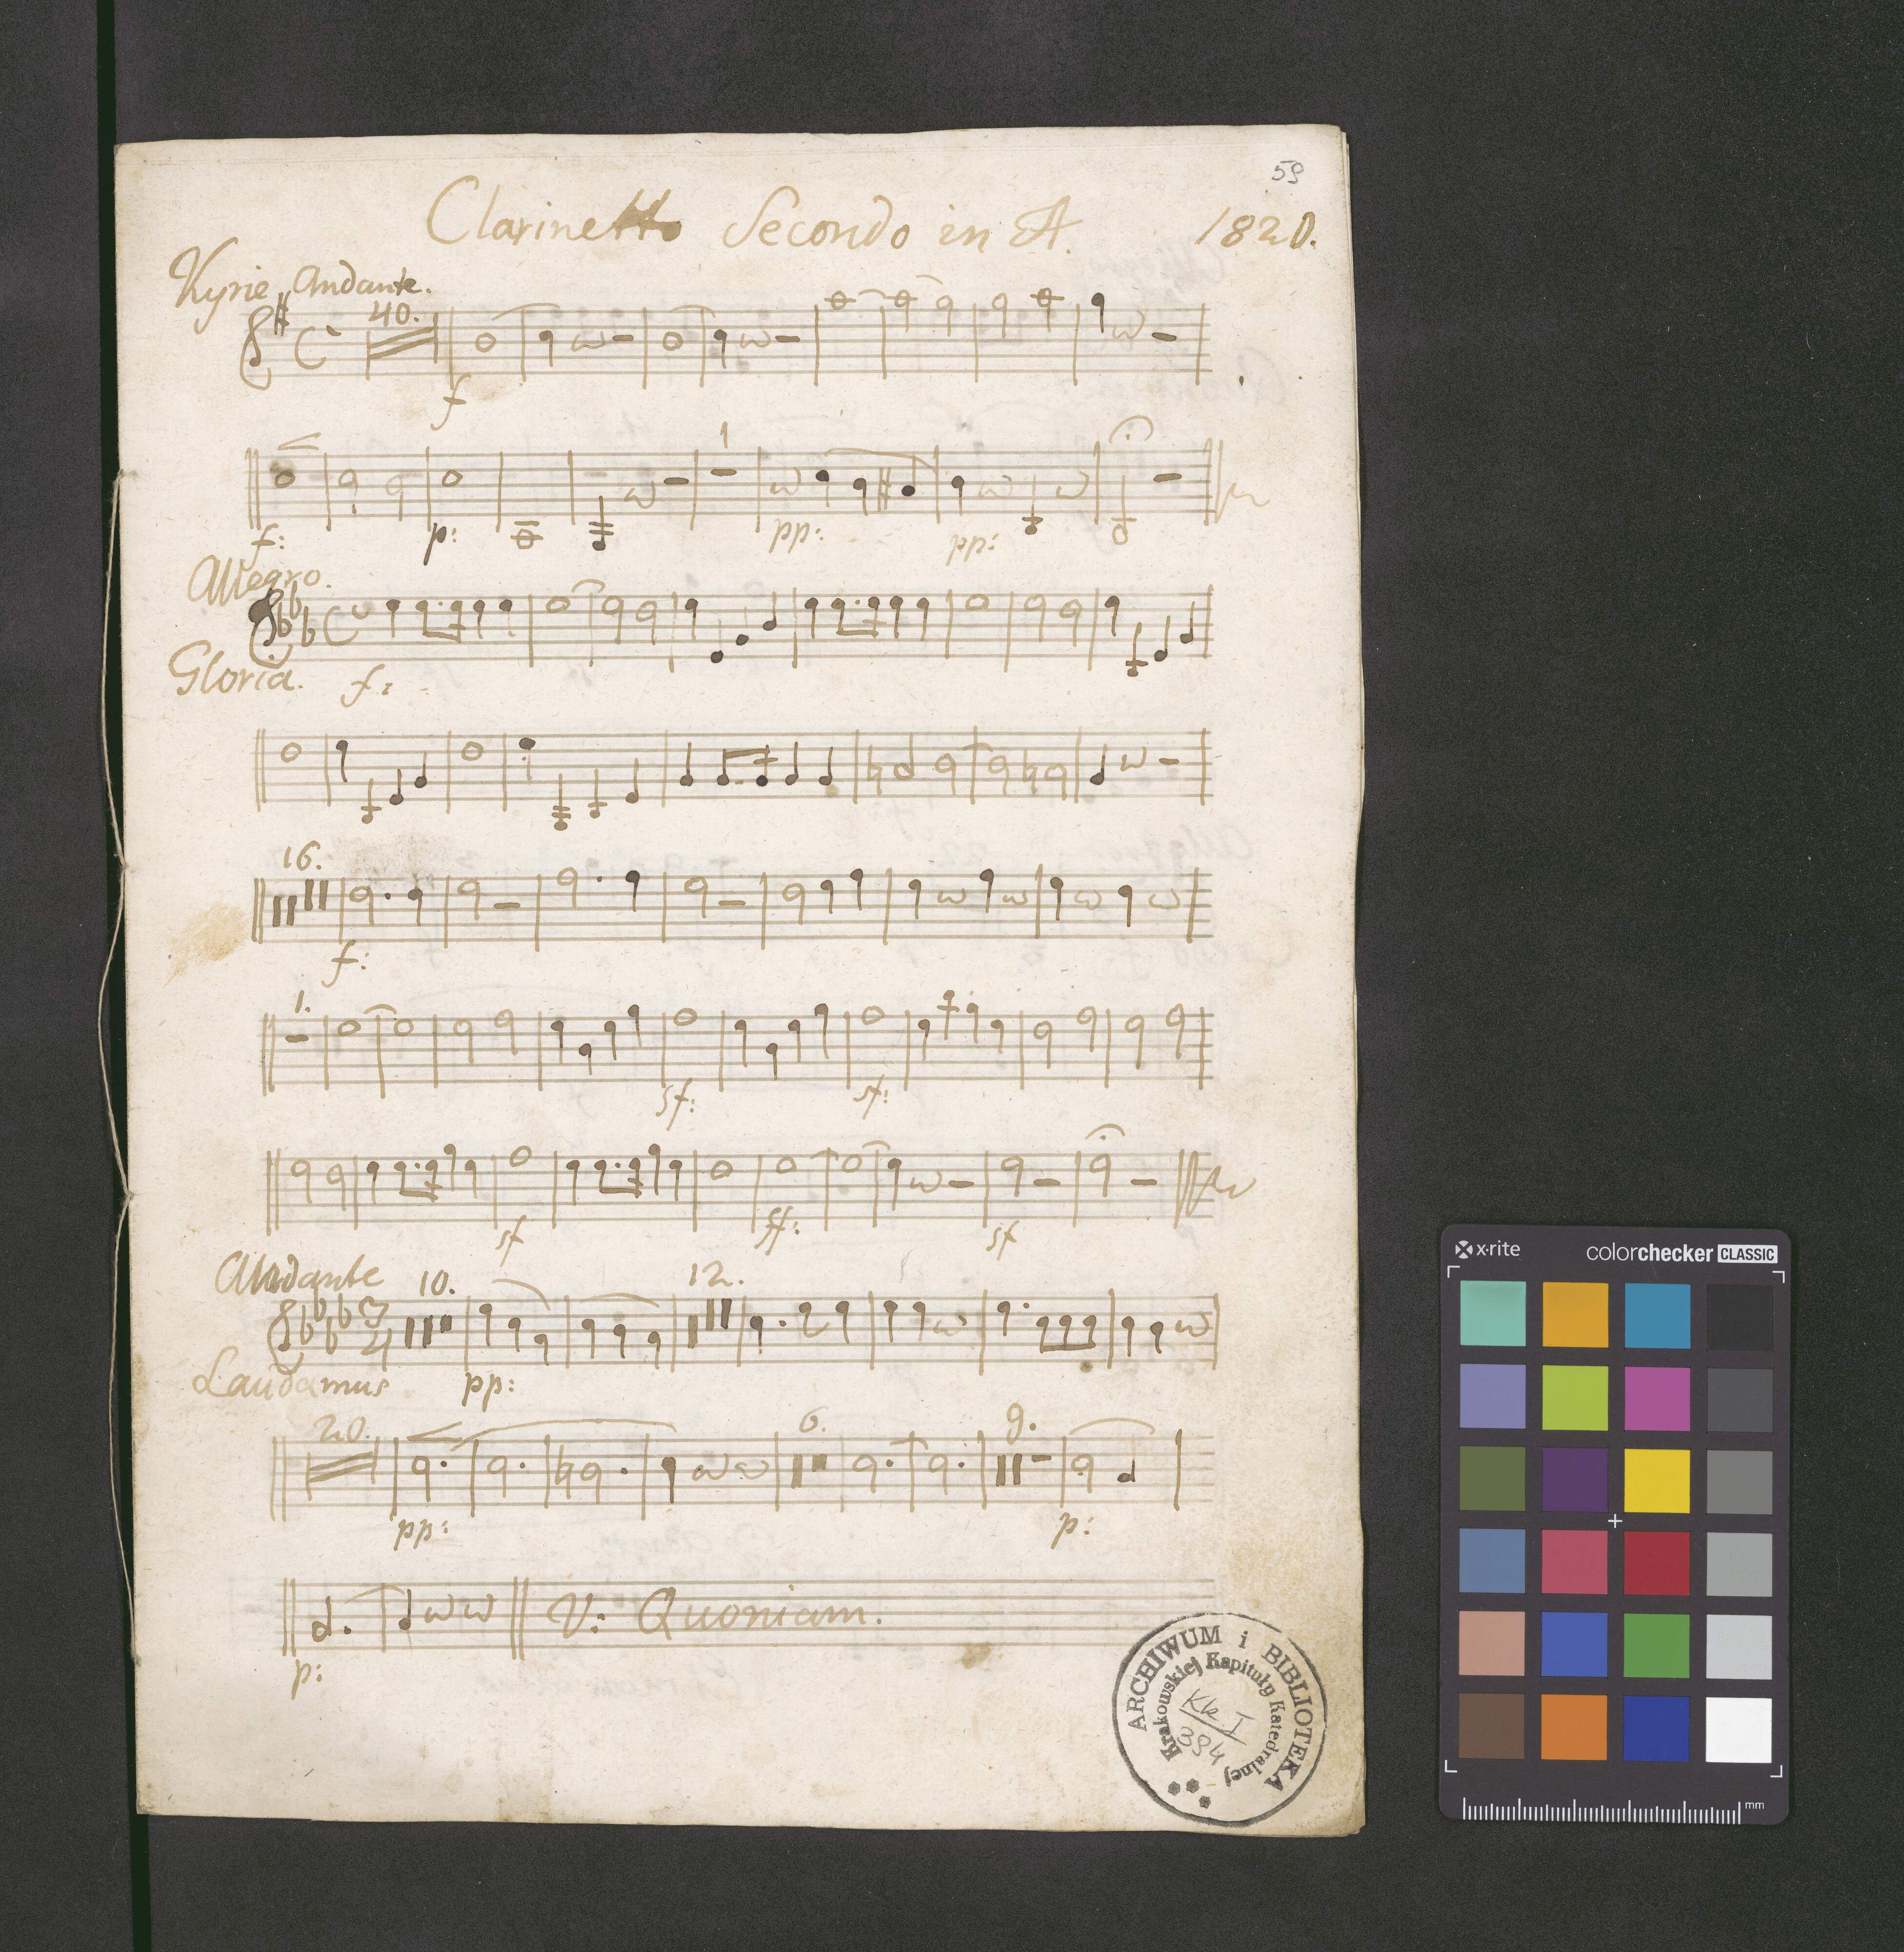 59
Clarinetto Secondo in A. 1820.
Kyrie Andante.
40.
f
1
f: p: pp: pp:
Allegro.
Gloria. f:
16.
f:
1.
sf: sf:
sf ff: sf
Andante 10. 12.
Laudamus pp:
20. 6. 9.
pp: p:
V: Quoniam.
p:
ARCHIWUM i BIBLIOTEKA
Krakowskiej Kapituły Katedralnej
Kk I
394
x·rite colorchecker CLASSIC
mm